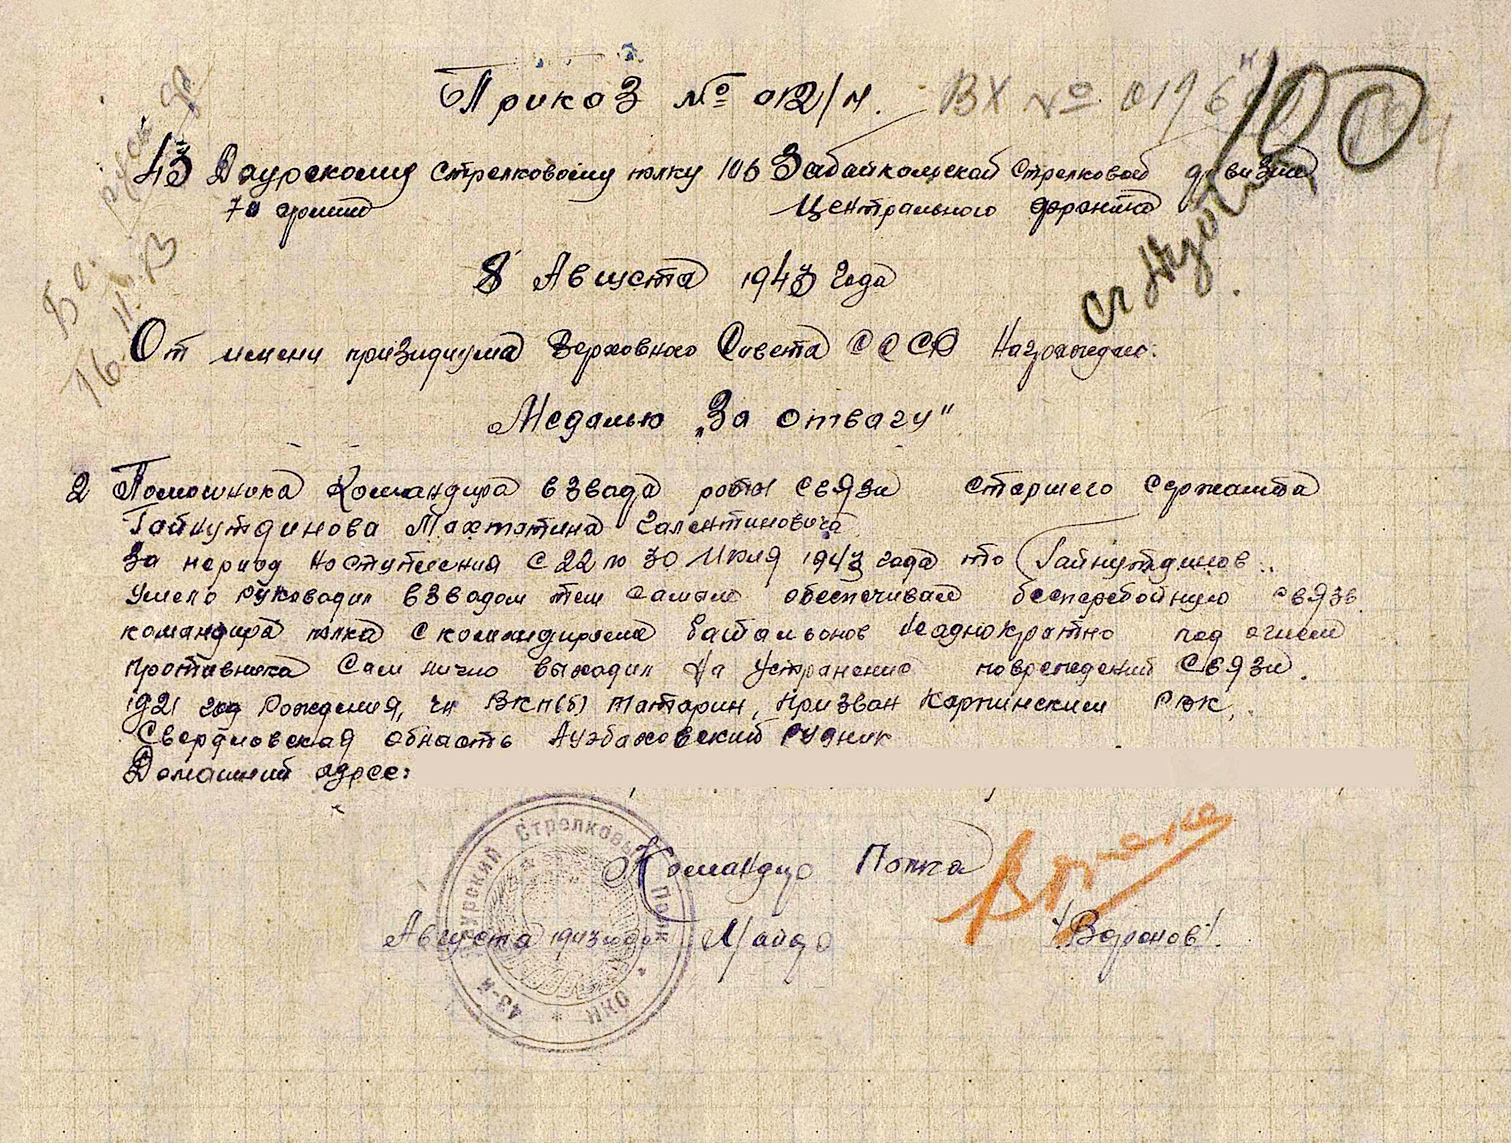 Приказ № 012/н. ВХ № 0196
43 Даурскому стрелковому полку 106 Забайкальской стрелковой дивизии
70 армии Центрального фронта
8 Августа 1943 года
От имени призидиума Верховного Совета СССР Награждаю:
Медалью „За отвагу"
2 Помошника Командира взвода роты связи старшего сержанта
Гайнутдинова Махтотина Галентиновича
За период наступления с 22 по 30 Июля 1943 года что Гайнутдинов
умело руководил взводом тем самым обеспечивал бесперебойную связь
командира полка с командирами батальонов Неаднократно под огнем
противника сам лично выходил на устранение повреждений связи.
1921 год рождения, чл ВКП(б) татарин, призван Карпинским РВК,
Свердловская область Ауэбаховский рудник
Домашний адрес:
Командир Полка
Августа 1943 года Майор /Воронов/.
43-й Даурский Стрелковый Полк * НКО *